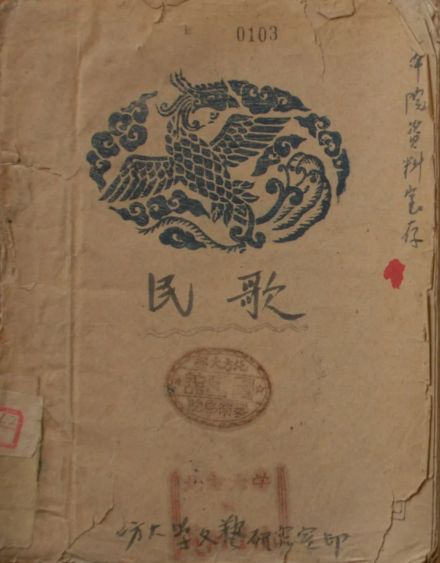 0103
本院資料室存
民歌
方大学文藝研究室印